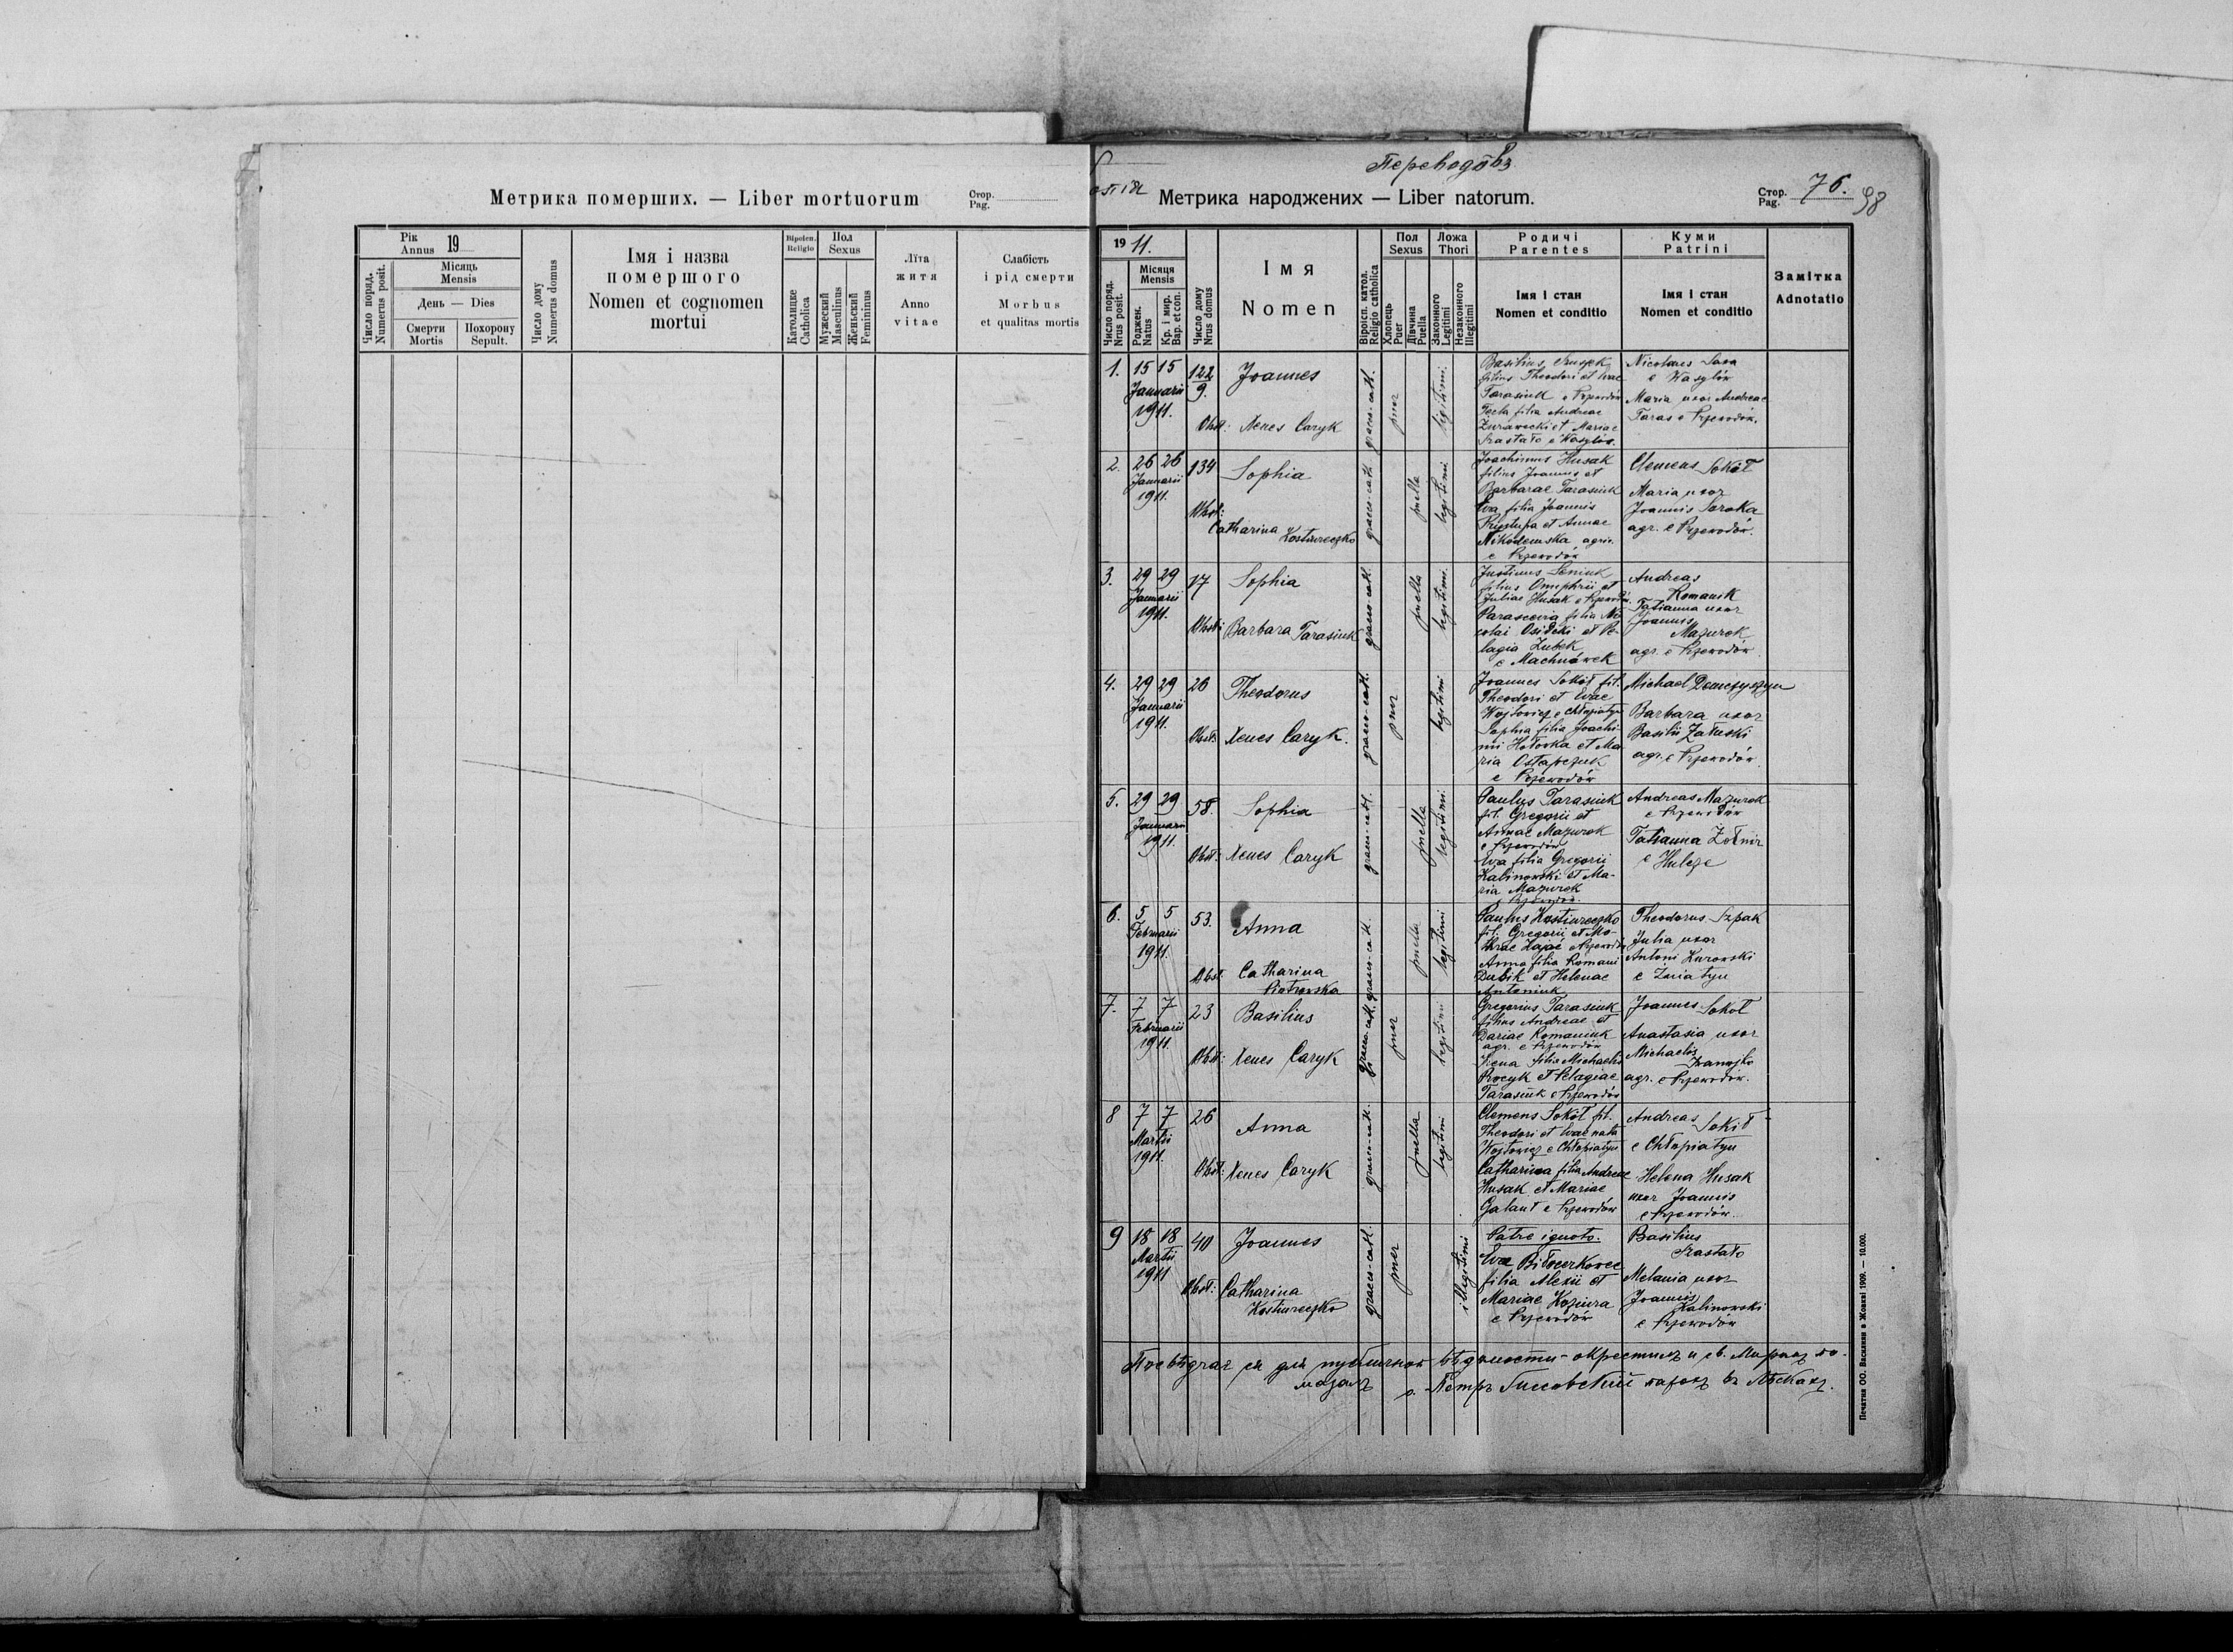 Метрика померших. — Liber mortuorum
Стор.
Pag.
Рік
Annus 19
Число поряд.
Numerus posit.
Місяць
Mensis
День — Dies
Смерти
Mortis
Похорону
Sepult.
Число дому
Numerus domus
Імя і назва
помершого
Nomen et cognomen
mortui
Віроісп.
Religio
Католицке
Catholica
Пол
Sexus
Мужеский
Masculinus
Женьский
Femininus
Літа
житя
Anno
vitae
Слабість
і рід смерти
Morbus
et qualitas mortis
Переводôвъ
Метрика народжених — Liber natorum.
Стор.
Pag. 76.
98
1911.
Число поряд.
Nrus posit.
Місяця
Mensis
Роджен.
Natus
Кр. і мир.
Bap. et con.
Число дому
Nrus domus
Імя
Nomen
Віроісп. катол.
Religio catholica
Пол
Sexus
Хлопець
Puer
Дівчина
Puella
Ложа
Thori
Законного
Legitimi
Незаконного
Illegitimi
Родичі
Parentes
Імя і стан
Nomen et conditio
Куми
Patrini
Імя і стан
Nomen et conditio
Замітка
Adnotatio
1. 15 15
Januarii
1911.
122
9.
Joannes
Obst: Xenes Caryk
graeco-cath.
puer
legitimi.
Basilius
filius Theodori et Evae
Tarasiuk e Przewodów
Tecla filia Andreae
Żurawecki et Mariae
Szastało e Wasylów.
Nicolaus Sawa
e Wasylów
Maria uxor Andreae
Taras e Przewodów.
2. 26 26
Januarii
1911.
134
Sophia
Obst:
Catharina Kostiureczko
graeco-cath.
puella
legitimi
Joachimus Husak
filius Joannis et
Barbarae Tarasiuk
Eva filia Joannis
Prystupa et Annae
Nikodemska agric.
e Przewodów
Clemens Sokół
Maria uxor
Joannis Soroka
agr. e Przewodów.
3. 29 29
Januarii
1911.
17
Sophia
Obst: Barbara Tarasiuk
graeco-cath.
puella
legitimi.
Justinus Seniuk
filius Onuphrii et
Juliae Husak e Przewodów.
Parascevia filia Ni-
colai Osidski et Pe-
lagia Zubek
e Machnówek
Andreas
Romanik
Tatianna uxor
Joannis
Mazurok
agr. e Przewodów.
4. 29 29
Januarii
1911.
26
Theodorus
Obst: Xenes Caryk.
graeco-cath.
puer
legitimi
Joannes Sokół fil.
Theodori et Evae
Wojtowicz e Chłopiatyn
Sophia filia Joachi-
mi Hołowka et Ma-
ria Ostapczuk
e Przewodów
Michael Demczyszyn
Barbara uxor
Basilii Załuski
agr. e Przewodów.
5. 29 29
Januarii
1911.
58.
Sophia
Obst: Xenes Caryk
graeco-cath.
puella
legitimi.
Paulus Tarasiuk
fil. Gregorii et
Annae Mazurok
e Przewodów
Eva filia Gregorii
Kalinowski et Ma-
ria Mazurok
e Przewodów.
Andreas Mazurok
e Przewodów
Tatianna Żołnir
e Hulcze
6. 5 5
Februarii
1911.
53.
Anna
Obst. Catharina
Piotrowska
graeco-cath.
puella
legitimi
Paulus Kostiureczko
fil. Gregorii et Mo-
krae Zając e Przewodów
Anna filia Romani
Dubik et Helenae
Antoniuk
Theodorus Szpak
Julia uxor
Antoni Kurowski
e Żniatyn
7. 7 7
Februarii
1911.
23
Basilius
Obst: Xenes Caryk
graeco-cath.
puer
legitimi
Gregorius Tarasiuk
filius Andreae et
Dariae Romaniuk
agr. e Przewodów
filia Michaelis
Procyk et Pelagiae
Tarasiuk e Przewodów
Joannes Sokół
Anastasia uxor
Michaelis
Iwanojko
agr. e Przewodów.
8 7 7
Martii
1911.
26
Anna
Obst: Xenes Caryk
graeco-cath.
puella
legitimi
Clemens Sokół fil.
Theodori et Evae nata
Wojtowicz e Chłopiatyn
Catharina filia Andreae
Husak et Mariae
Galant e Przewodów
Andreas Sokół
e Chłopiatyn
Helena Husak
uxor Joannis
e Przewodów.
9 18 18
Martii
1911
40
Joannes
Obst: Catharina
Kostiureczko
graeco-cath.
puer
illegitimi
Patre ignoto.
Eva Biłocerkowec
filia Alexii et
Mariae Koziura
e Przewodów
Basilius
Szastało
Melania uxor
Joannis
Kalinowski
e Przewodów
ся для публичной вѣдомости - окрестилъ и св. Миромъ по-
мазалъ о. Петръ парохъ въ
Печатня ОО. Василиян в Жовкві 1909. — 10.000.